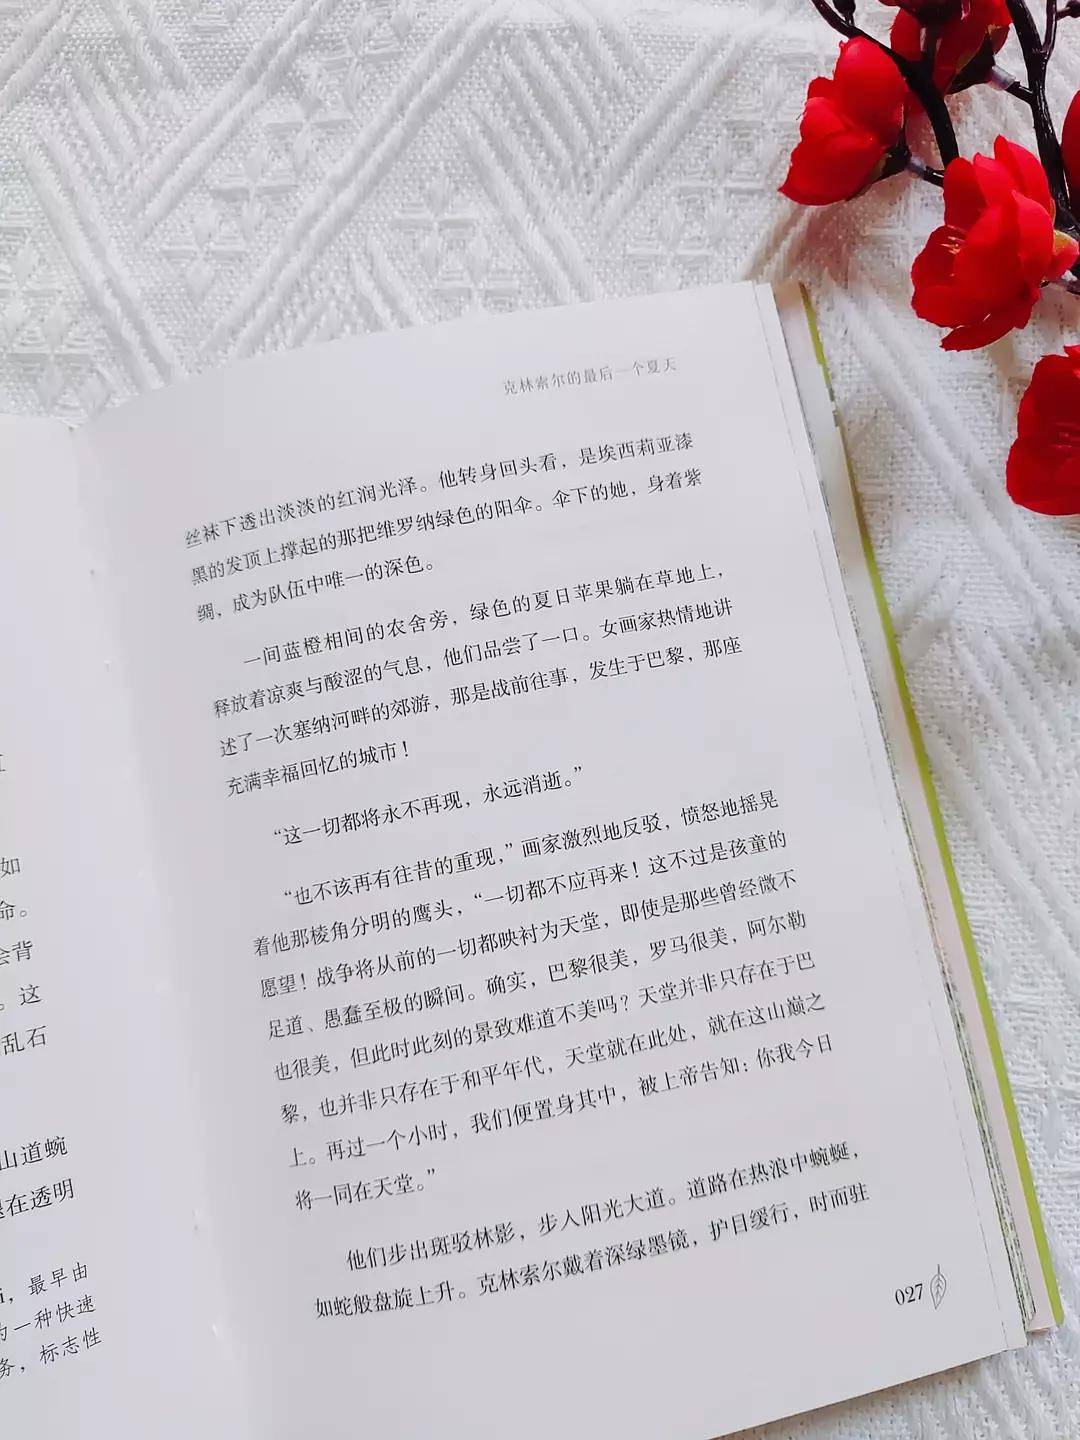 直
如
命。
会背
。这
乱石
山道蜿
在透明
i，最早由
为一种快速
务，标志性
克林索尔的最后一个夏天
丝袜下透出淡淡的红润光泽。他转身回头看，是埃西莉亚漆
黑的发顶上撑起的那把维罗纳绿色的阳伞。伞下的她，身着紫
绸，成为队伍中唯一的深色。
一间蓝橙相间的农舍旁，绿色的夏日苹果躺在草地上，
释放着凉爽与酸涩的气息，他们品尝了一口。女画家热情地讲
述了一次塞纳河畔的郊游，那是战前往事，发生于巴黎，那座
充满幸福回忆的城市！
“这一切都将永不再现，永远消逝。”
“也不该再有往昔的重现，”画家激烈地反驳，愤怒地摇晃
着他那棱角分明的鹰头，“一切都不应再来！这不过是孩童的
愿望！战争将从前的一切都映衬为天堂，即使是那些曾经微不
足道、愚蠢至极的瞬间。确实，巴黎很美，罗马很美，阿尔勒
也很美，但此时此刻的景致难道不美吗？天堂并非只存在于巴
黎，也并非只存在于和平年代，天堂就在此处，就在这山巅之
上。再过一个小时，我们便置身其中，被上帝告知：你我今日
将一同在天堂。”
他们步出斑驳林影，步入阳光大道。道路在热浪中蜿蜒，
如蛇般盘旋上升。克林索尔戴着深绿墨镜，护目缓行，时而驻
027